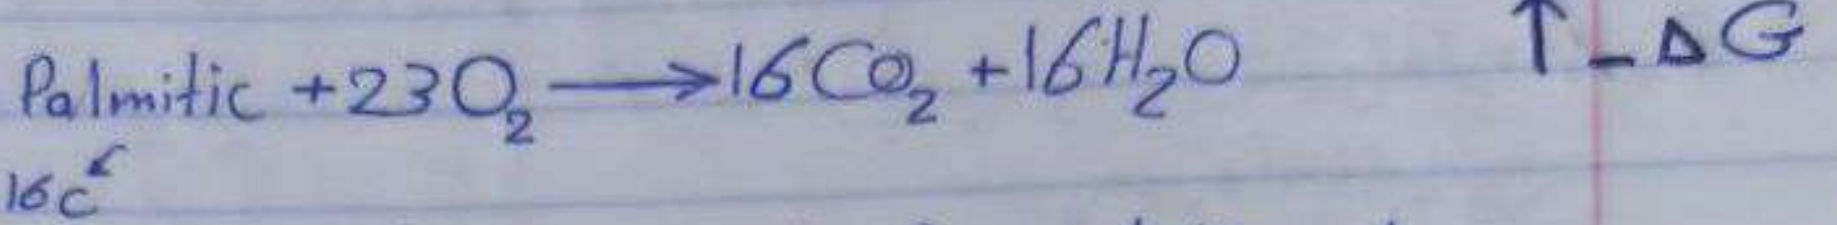 Palmitic + 23O₂ ⟶ 16CO₂ + 16H₂O ↑ - ΔG
16C